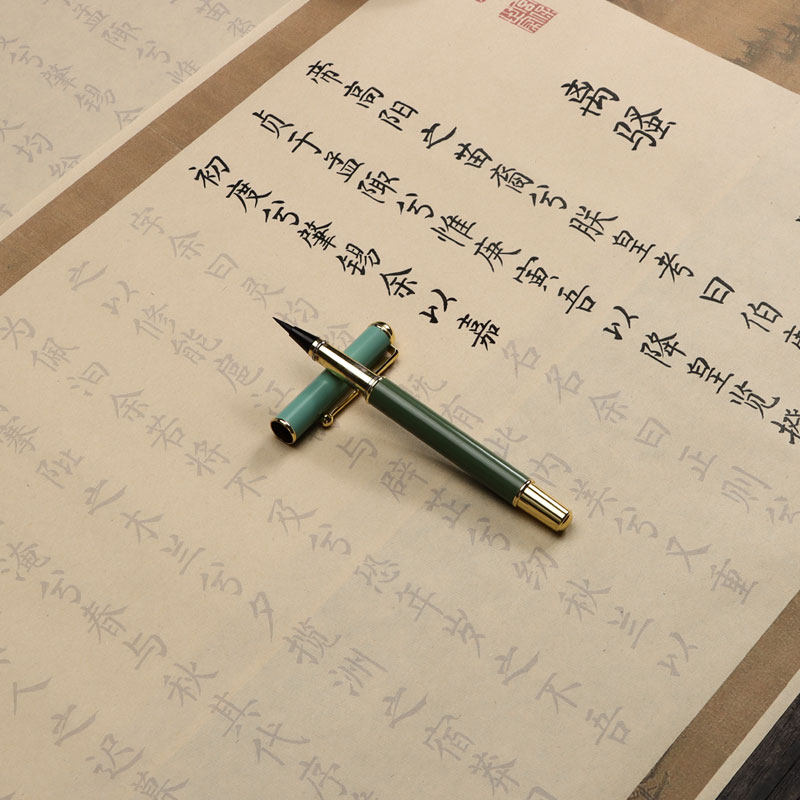 离骚
帝高阳之苗裔兮朕皇考曰伯庸
贞于孟陬兮惟庚寅吾以降皇览揆
初度兮肇锡余以嘉名名余曰正则兮
字余曰灵均纷既有此内美兮又重
之以修能扈江与辟芷兮纫秋兰以
为佩汩余若将不及兮恐年岁之不吾
搴阰之木兰兮夕揽洲之宿莽
淹兮春与秋其代序
人之迟暮
孟陬兮惟
兮肇锡余
均纷